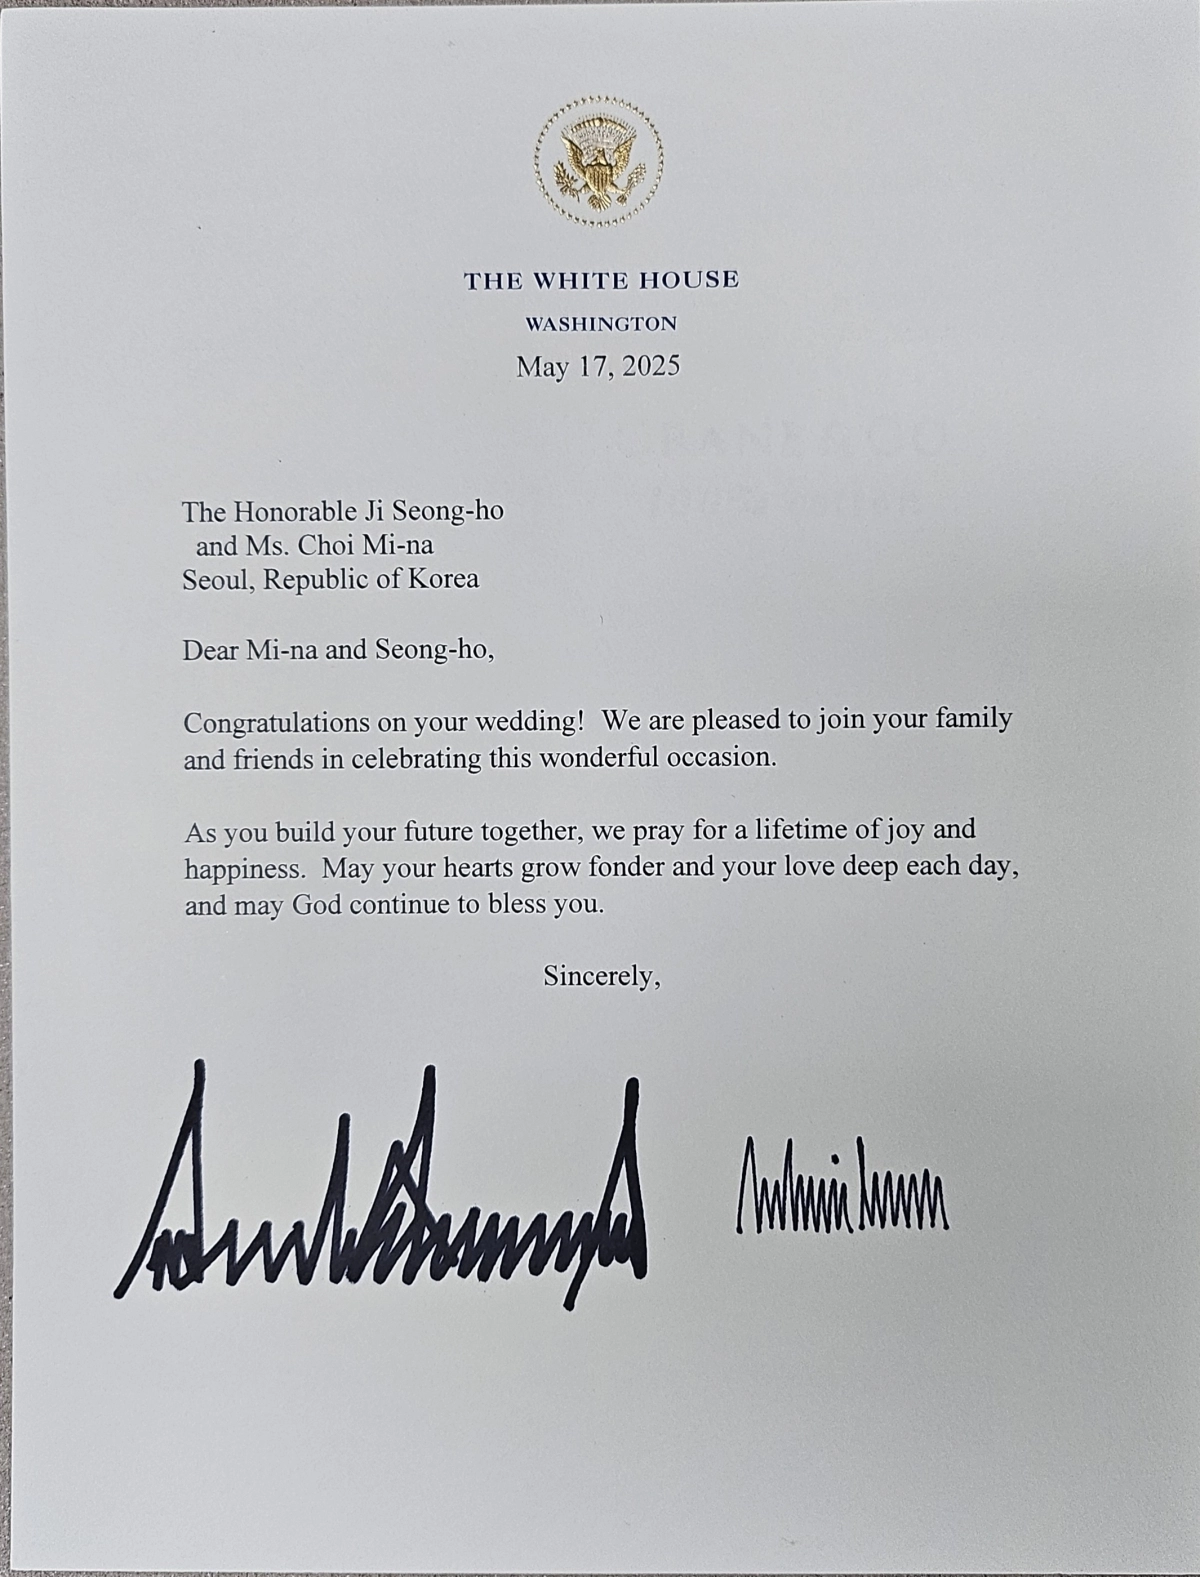 THE WHITE HOUSE
WASHINGTON
May 17, 2025
The Honorable Ji Seong-ho
and Ms. Choi Mi-na
Seoul, Republic of Korea
Dear Mi-na and Seong-ho,
Congratulations on your wedding! We are pleased to join your family
and friends in celebrating this wonderful occasion.
As you build your future together, we pray for a lifetime of joy and
happiness. May your hearts grow fonder and your love deep each day,
and may God continue to bless you.
Sincerely,